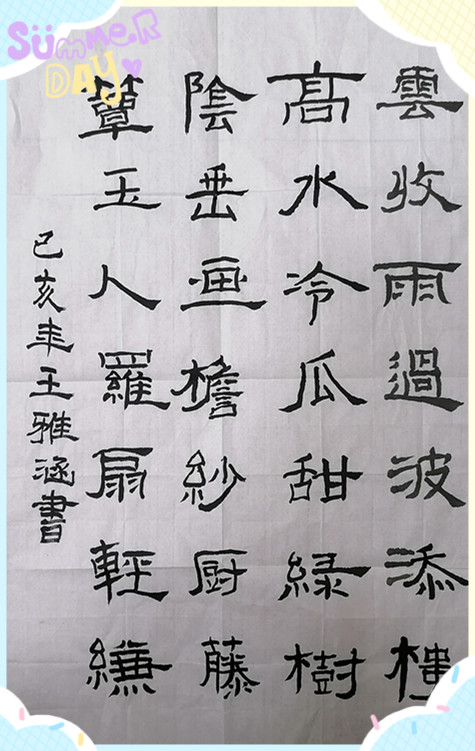 SÜmmeR
DAY
雲收雨過波添樓
髙水冷瓜甜緑樹
陰垂画檐紗厨藤
簟玉人羅扇輕縑
己亥年王雅涵書